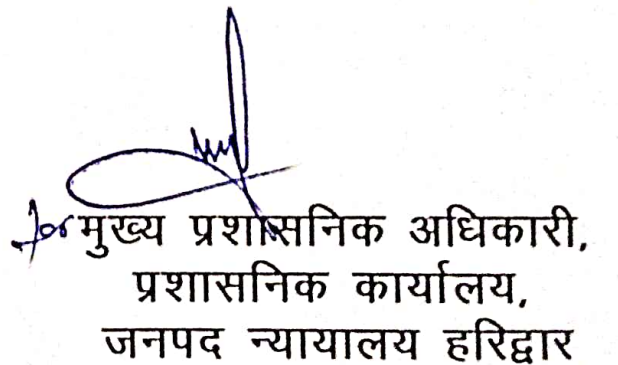 for मुख्य प्रशासनिक अधिकारी,
प्रशासनिक कार्यालय,
जनपद न्यायालय हरिद्वार